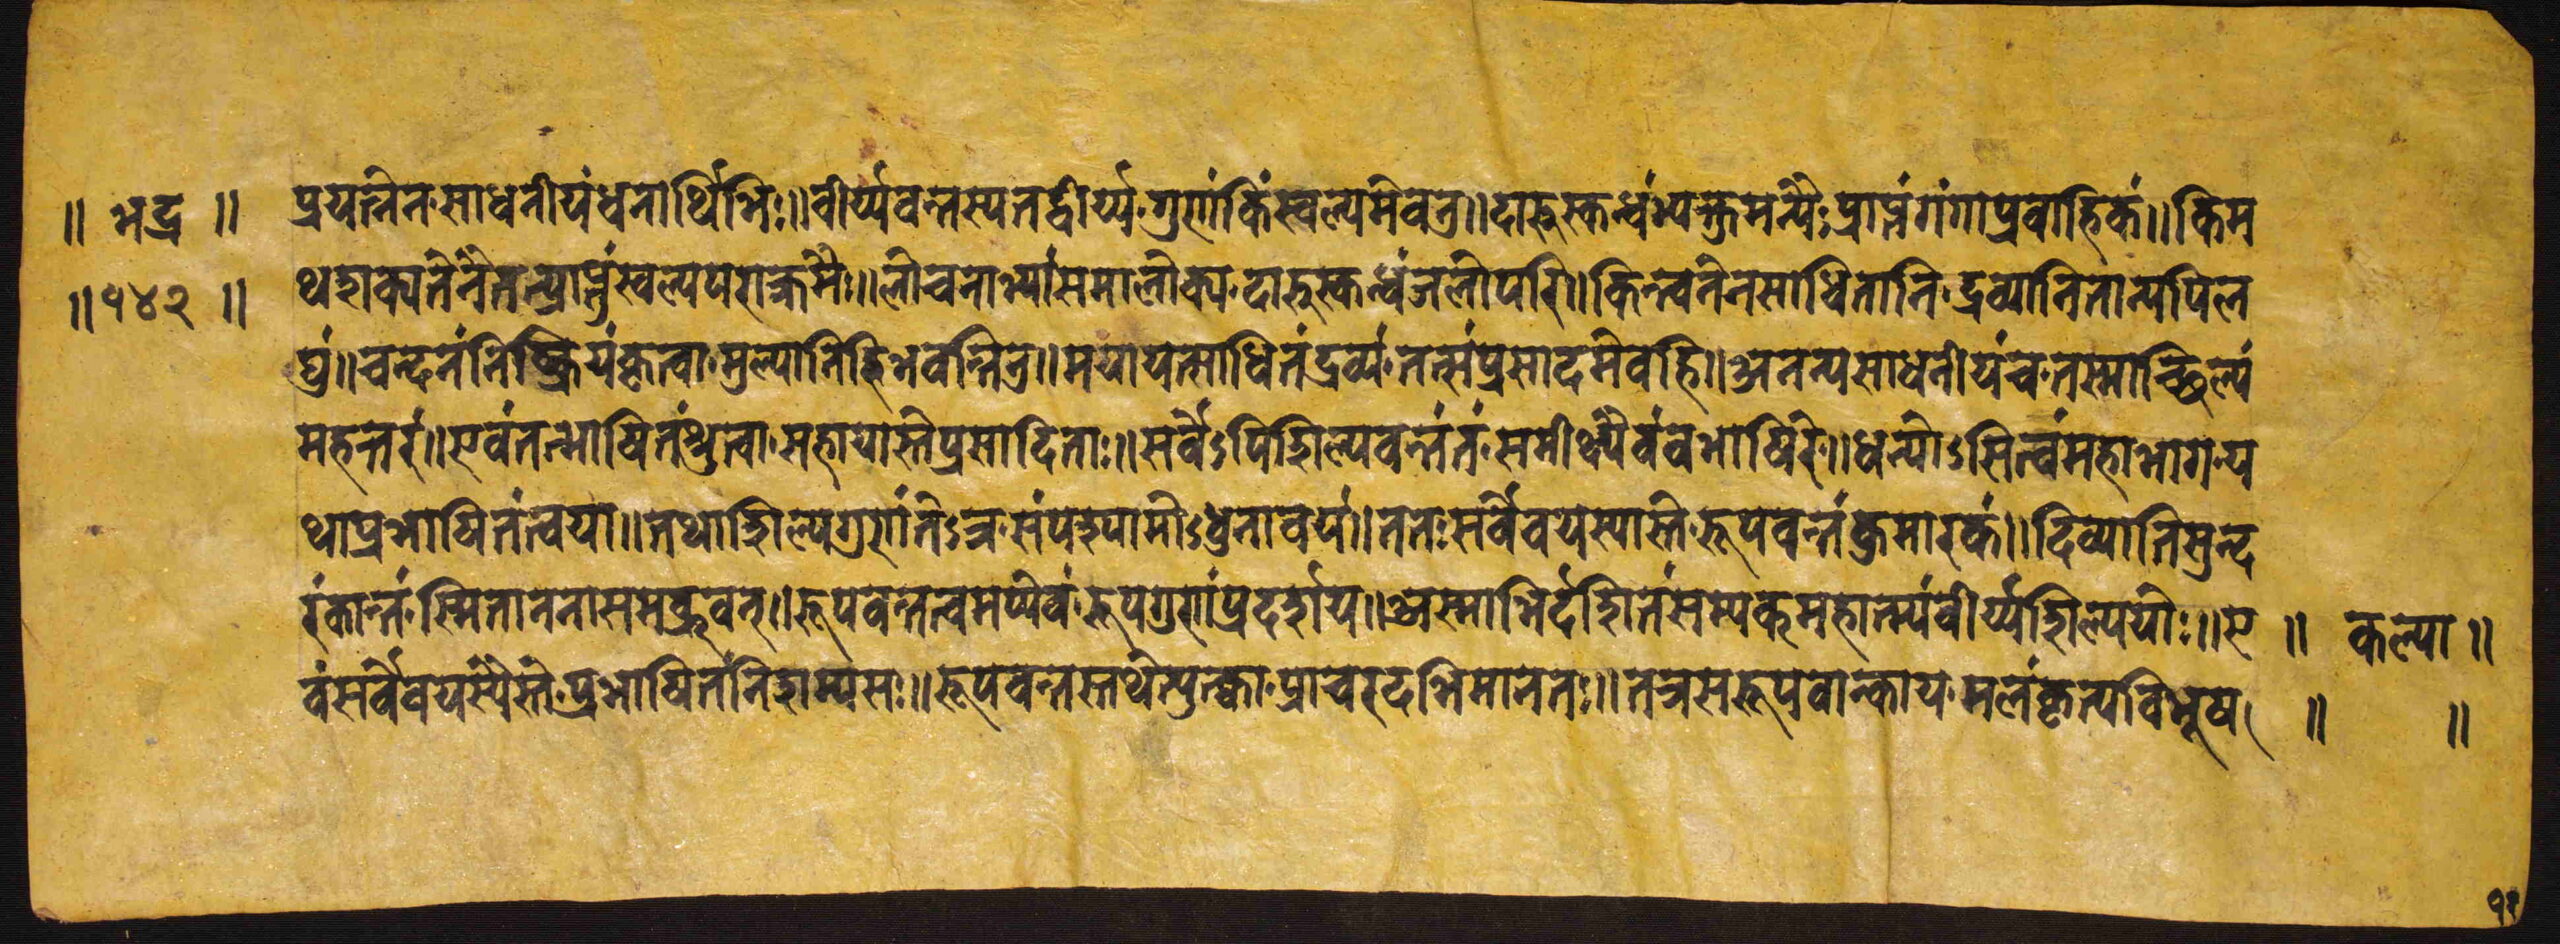 ॥ भद्र ॥ प्रयत्नेन साधनीयं धनार्थिभिः॥ वीर्य्यवन्तस्य तद्वीर्य्य गुणं किं स्वल्पमेव नु॥ दारुस्कन्धं प्यस्तुमन्यैः प्राप्तं गंगाप्रवाहिकं॥ किम
॥ १४२ ॥ थ शक्यते नैतत्प्राप्तुं स्वल्पपराक्रमैः॥ लोचनाभ्यां समालोक्य दारुस्कन्धं जलोपरि॥ किन्त्वनेन साधितानि द्रव्यानि तान्यपि ल
घुं॥ चन्दनं निष्क्रियं कृत्वा मुल्यानि हि भवन्ति नु॥ मया यत्साधितं द्रव्यं तत्संप्रसादमेव हि॥ अनन्यसाधनीयं च तस्माच्छिल्पं
महत्तरं॥ एवं तत्भाषितं श्रुत्वा सहायास्ते प्रसादिताः॥ सर्वेऽपि शिल्पवन्तं तं समीक्ष्यैवं वभाषिरे॥ धन्योऽसि त्वं महाभाग त्य
था प्रभाषितं त्वया॥ तथा शिल्पगुणं तेऽत्र संपश्यामोऽधुना वयं॥ ततः सर्वे वयस्यास्ते रूपवन्तं कुमारकं॥ दिव्यातिसुन्द
रं कान्तं स्मितानना समब्रुवन्॥ रूपवन्तत्वमप्येवं रूपगुणं प्रदर्शय॥ अस्माभिर्दर्शितं सम्यक् महात्म्यं वीर्य्यशिल्पयोः॥ ए ॥ कल्पा ॥
वं सर्वे वयस्यैस्ते प्रभाषितं निशम्य सः॥ रूपवन्तस्तथेत्युक्त्वा प्राचरदभिमानतः॥ तत्र स रूपवान्काय मलंकृत्य विभूष ॥ ॥